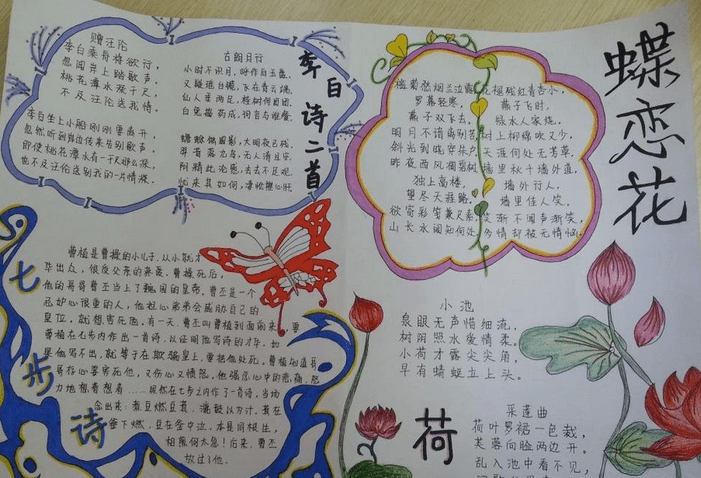 李白诗二首
赠汪伦
李白乘舟将欲行,
忽闻岸上踏歌声。
桃花潭水深千尺,
不及汪伦送我情。
李白坐上小船刚刚要离开,
忽然听到岸边传来告别歌声。
即使桃花潭水有一千尺那么深,
也不及汪伦送别我的一片情深。
古朗月行
小时不识月,呼作白玉盘。
又疑瑶台镜,飞在青云端。
仙人垂两足,桂树何团团。
白兔捣药成,问言与谁餐。
蟾蜍蚀圆影,大明夜已残。
羿昔落九乌,天人清且安。
阴精此沦惑,去去不足观。
忧来其如何,
蝶恋花
槛菊愁烟兰泣露
罗幕轻寒,
燕子双飞去。
明月不谙离别苦
斜光到晓穿朱户
昨夜西风凋碧树
独上高楼,
望尽天涯路。
欲寄彩笺兼尺素
山长水阔知何处
花褪残红青杏小,
燕子飞时,
绿水人家绕。
枝上柳绵吹又少,
天涯何处无芳草。
墙里秋千墙外道,
墙外行人,
墙里佳人笑。
笑渐不闻声渐笑,
多情却被无情恼。
七步诗
曹植是曹操的小儿子,从小就才
华出众,很受父亲的亲爱。曹操死后,
他的哥哥曹丕当上了魏国的皇帝。曹丕是一个
忌妒心很重的人,他担心弟弟会威胁自己的
皇位,就想害死他。有一天,曹丕叫曹植到面前来,要
曹植在七步内作出一首诗,以证明他写诗的才华。如
果他写不出,就等于在欺骗皇上,要把他处死。曹植知道哥
哥存心要害死他,又伤心又愤怒。他强忍心中的悲痛,努
力地想着想着……果然在七步之内作了一首诗,当场
念出来:煮豆燃豆萁,漉豉以为汁。萁在
釜下燃,豆在釜中泣。本是同根生,
相煎何太急!后来,曹丕
放过了他。
小池
泉眼无声惜细流,
树阴照水爱情柔。
小荷才露尖尖角,
早有蜻蜓立上头。
荷
采莲曲
荷叶罗裙一色裁,
芙蓉向脸两边开。
乱入池中看不见,